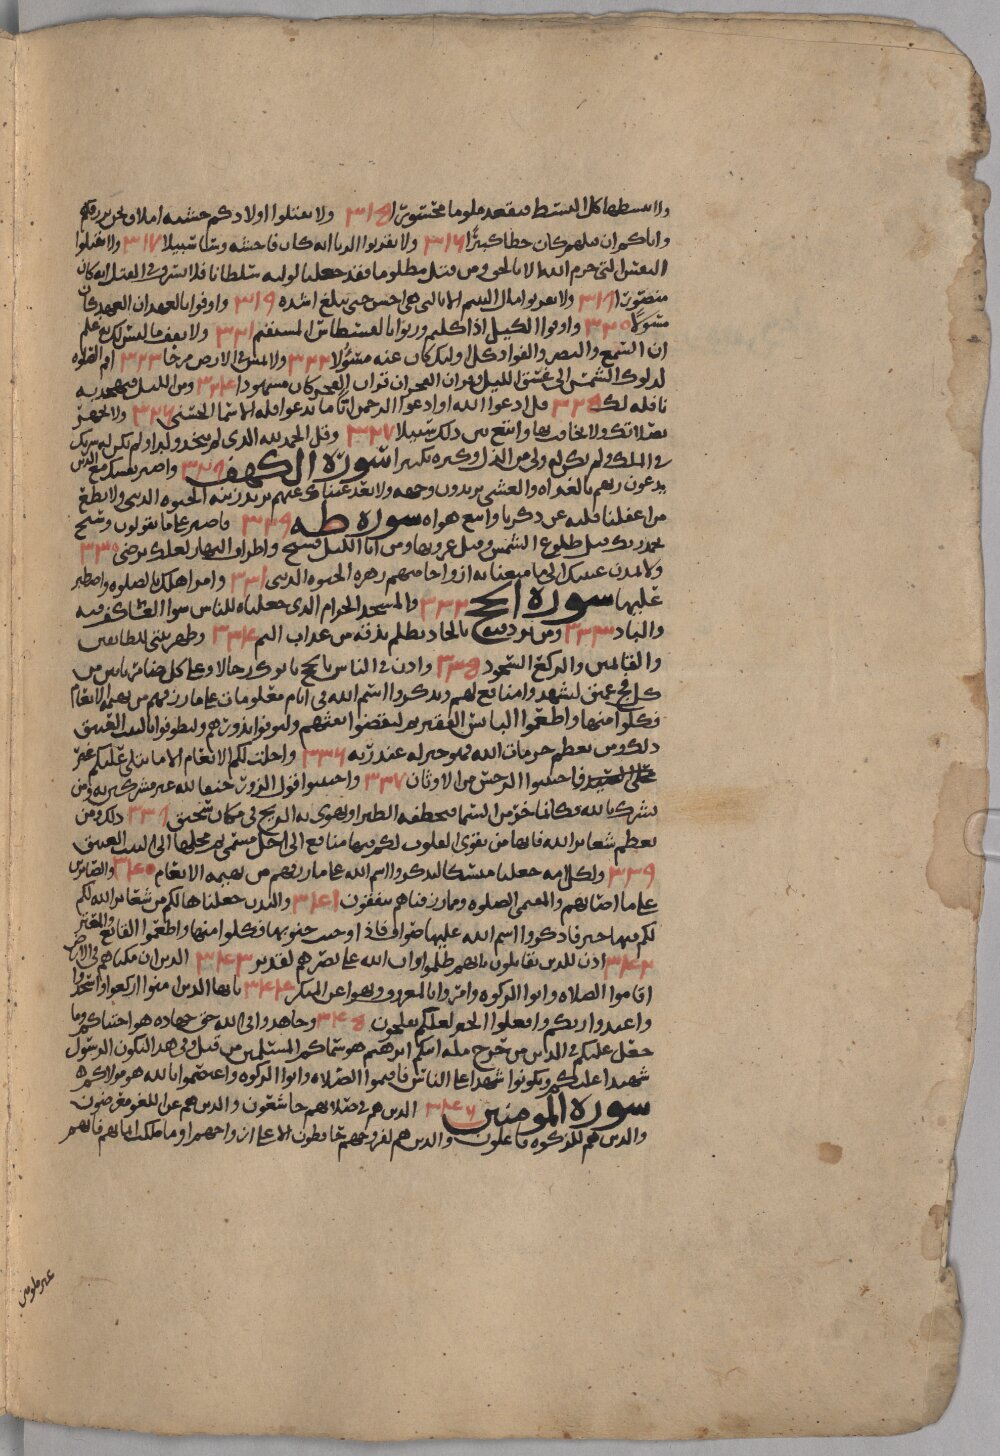 ولا تبسطها كل البسط فتقعد ملوما محسورا ٣١٥ ولا تقتلوا اولادكم خشيه املاق نحن نرزقهم
واياكم ان قتلهم كان خطا كبيرا ٣١٦ ولا تقربوا الزنا انه كان فاحشه وسا سبيلا ٣١٧ ولا تقتلوا
النفس التي حرم الله الا بالحق ومن قتل مظلوما فقد جعلنا لوليه سلطانا فلا يسرف في القتل انه كان
منصورا ٣١٨ ولا تقربوا مال اليتيم الا بالتي هي احسن حتى يبلغ اشده ٣١٩ واوفوا بالعهد ان العهد كان
مسولا ٣٢٠ واوفوا الكيل اذا كلتم وزنوا بالقسطاس المستقيم ٣٢١ ولا تقف ما ليس لك به علم
ان السمع والبصر والفواد كل اولئك كان عنه مسولا ٣٢٢ ولا تمش في الارض مرحا ٣٢٣ اقم الصلوه
لدلوك الشمس الى غسق الليل وقران الفجر ان قران الفجر كان مشهودا ٣٢٤ ومن الليل فتهجد به
نافله لك ٣٢٥ قل ادعوا الله او ادعوا الرحمن ايا ما تدعوا فله الاسما الحسنى ٣٢٦ ولا تجهر
بصلاتك ولا تخافت بها وابتغ بين ذلك سبيلا ٣٢٧ وقل الحمد لله الذي لم يتخذ ولدا ولم يكن له شريك
في الملك ولم يكن له ولي من الذل وكبره تكبيرا سورة الكهف ٣٢٨ واصبر نفسك مع الذين
يدعون ربهم بالغداه والعشي يريدون وجهه ولا تعد عيناك عنهم تريد زينه الحيوه الدنيى ولا تطع
من اغفلنا قلبه عن ذكرنا واتبع هواه سورة طه ٣٢٩ فاصبر على ما يقولون وسبح
بحمد ربك قبل طلوع الشمس وقبل غروبها ومن انا الليل فسبح واطراف النهار لعلك ترضى ٣٣٠
ولا تمدن عينيك الى ما متعنا به ازواجا منهم زهره الحيوه الدنيى ٣٣١ وامر اهلك بالصلوه واصطبر
عليها سورة الحج ٣٣٢ والمسجد الحرام الذي جعلناه للناس سوا العاكف فيه
والباد ٣٣٣ ومن يرد فيه بالحاد بظلم نذقه من عذاب اليم ٣٣٤ وطهر بيتي للطايفين
والقايمين والركع السجود ٣٣٥ واذن في الناس بالحج ياتوك رجالا وعلى كل ضامر ياتين من
كل فج عميق ليشهدوا منافع لهم ويذكروا اسم الله في ايام معلومات على ما رزقهم من بهيمه الانعام
فكلوا منها واطعموا البايس الفقير ثم ليقضوا تفثهم وليوفوا نذورهم وليطوفوا بالبيت العتيق
ذلك ومن يعظم حرمات الله فهو خير له عند ربه ٣٣٦ واحلت لكم الانعام الا ما يتلى عليكم غير
محلي الصيد فاجتنبوا الرجس من الاوثان ٣٣٧ واجتنبوا قول الزور حنفا لله غير مشركين به ومن
يشرك بالله فكانما خر من السما فتخطفه الطير او تهوي به الريح في مكان سحيق ٣٣٨ ذلك ومن
يعظم شعاير الله فانها من تقوى القلوب لكم فيها منافع الى اجل مسمى ثم محلها الى البيت العتيق
٣٣٩ ولكل امه جعلنا منسكا ليذكروا اسم الله على ما رزقهم من بهيمه الانعام ٣٤٠ والصابرين
على ما اصابهم والمقيمي الصلوه ومما رزقناهم ينفقون ٣٤١ والبدن جعلناها لكم من شعاير الله لكم
لكم فيها خير فاذكروا اسم الله عليها صواف فاذا وجبت جنوبها فكلوا منها واطعموا القانع والمعتر
٣٤٢ اذن للذين يقاتلون بانهم ظلموا وان الله على نصرهم لقدير ٣٤٣ الذين ان مكناهم في الارض
اقاموا الصلاه واتوا الزكوه وامروا بالمعروف ونهوا عن المنكر ٣٤٤ يايها الذين امنوا اركعوا واسجدوا
واعبدوا ربكم وافعلوا الخير لعلكم تفلحون ٣٤٥ وجاهدوا في الله حق جهاده هو اجتباكم وما
جعل عليكم في الدين من حرج مله ابيكم ابرهيم هو سماكم المسلمين من قبل وفي هذا ليكون الرسول
شهيدا عليكم وتكونوا شهدا على الناس فاقيموا الصلاه واتوا الزكوه واعتصموا بالله هو مولاكم
سورة المومنين ٣٤٦ الذين هم في صلاتهم خاشعون والذين هم عن اللغو معرضون
والذين هم للزكوه فاعلون والذين هم لفروجهم حافظون الا على ازواجهم او ما ملكت ايمانهم فانهم
غير ملومين